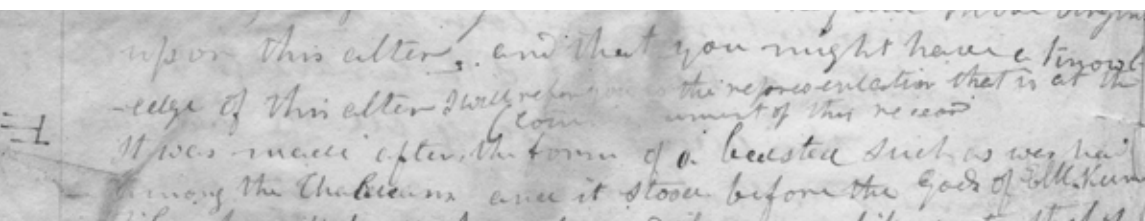 upon this alter, and that you might have a knowl-
-edge of this alter I will refer you to the representation that is at the
com mencement of this record
It was made after the form of a beasted such as was had
among the Chaldeans and it stood before the Gods of Elk Kener